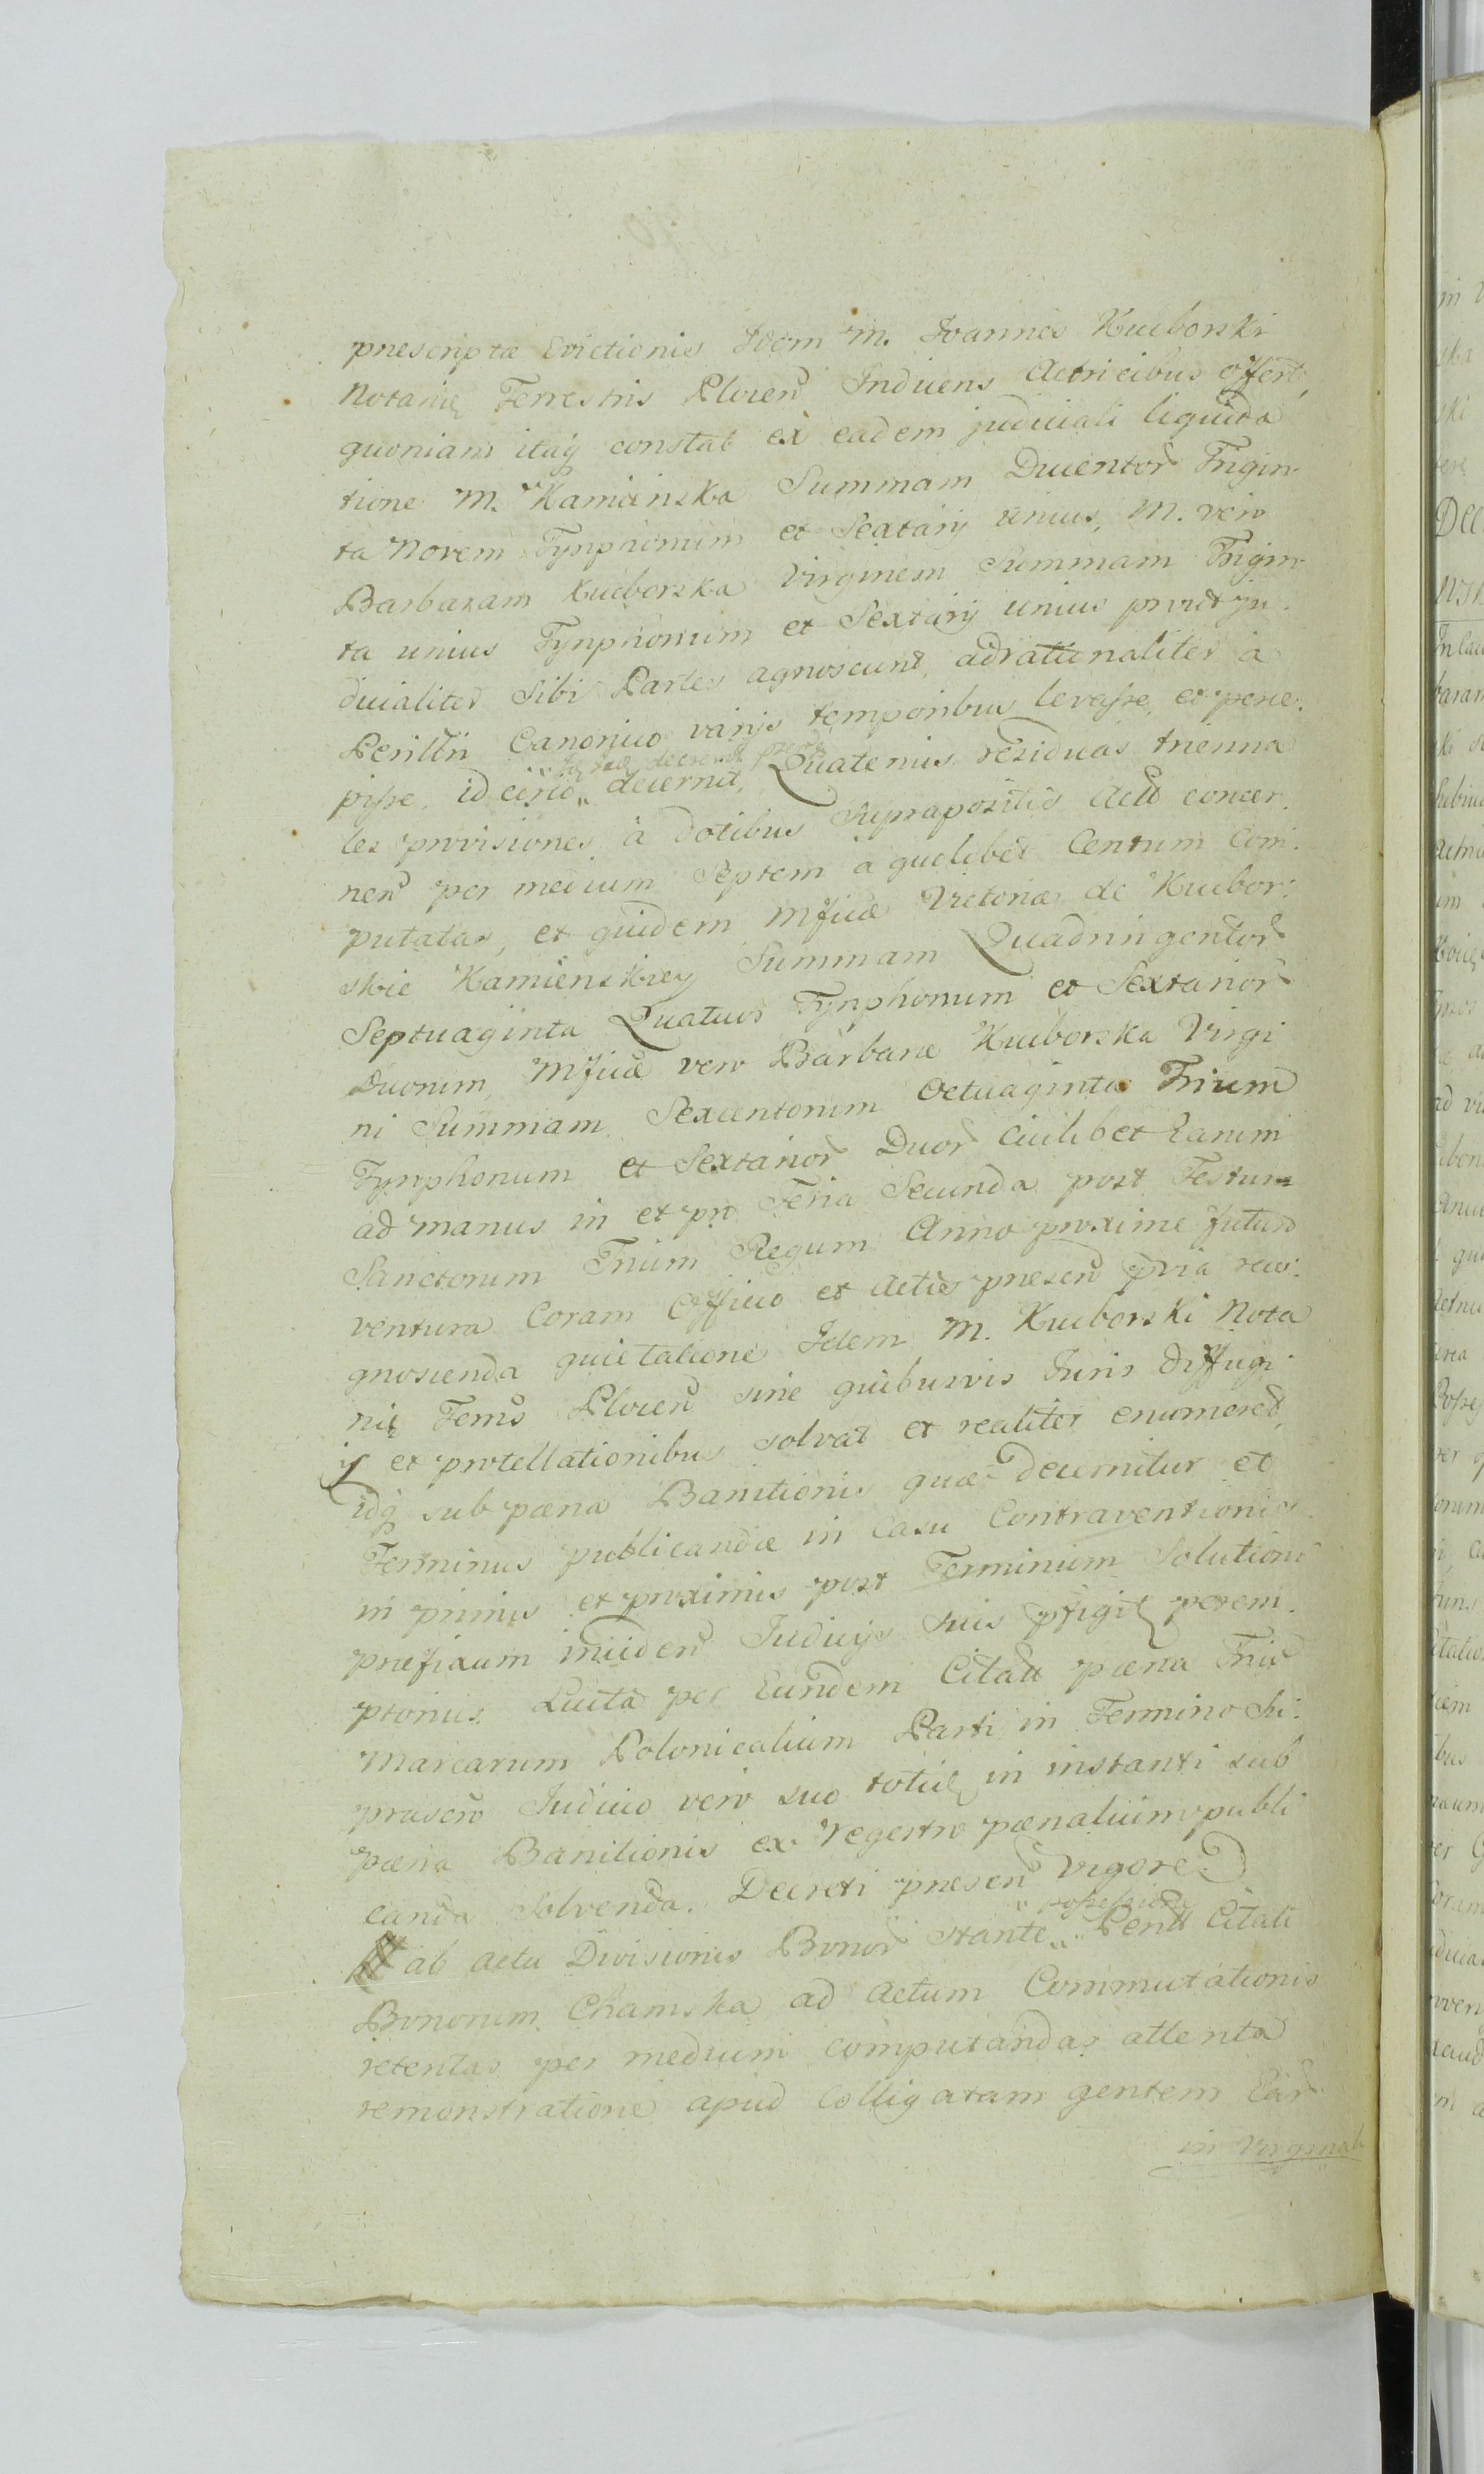 præscriptæ Evictionis Idem M. Joannes Kuciborski
Notariꝰ Terrestris Plocen̄ Induens Actricibus offert,
quoniam itaq constat ex eadem judiciali liquida
tione M. Kamieńska Summam Ducentor̄ Trigin-
ta Novem Tynphonum et Sextarij unius, M. vero
Barbaram Kuciborska Virginem Summam Trigin-
ta unius Tynphonum et Sextarij unius prout ju-
dicialiter Sibi Partes agnoscunt, adrationaliter à
Perilln̄ Canonico varijs temporibus levasse, et perce-
pisse, idcirco decernit, Quatenus residuas trienna
les provisiones à dotibus suprapositis Act̄ concer-
nen̄ per medium Septem a quolibet Centum Com-
putatas, et quidem Mficæ Victoriæ de Kucibor-
skie Kamienskiey Summam Quadringentor̄
Septuaginta Quatuor Tynphonum et Sextarior̄
Duorum, Mficæ vero Barbaræ Kuciborska Virgi
ni Summam Sexcentorum Octuaginta Trium
Tynphonum et Sextarior̄ Duor̄ Cuilibet Earum
ad manus in et pro Feria Secunda post Festum
Sanctorum Trium Regum Anno proxime futuro
ventura Coram Officio et Actis præsen̄ pria reco-
gnoscenda quietatione Idem M. Kuciborski Nota
riꝰ Terris̄ Plocen̄ sine quibusvis Juris diffugi
ij et protellationibus solvat et realiter enumeret,
idq sub pæna Banitionis quæ decernitur et
Terminus publicandæ in casu Contraventionis
in primis et proximis post Terminum Solutioni
præfixum inciden̄ Judicijs suis pfigit perem-
ptorius. Luita per Eundem Citatū pæna Triū
Marcarum Polonicalium Parti in Termino Su-
prascr̄ Judicio vero suo totiꝰ in instanti sub
pæna Banitionis ex Regestro pænalium publi
canda Solvenda. Decreti præsen̄ vigore.
possessione
ab actu Divisionis Bonor̄ stante Citati
Bonorum Chamska ad Actum Commutationis
retentas per medium computandas attenta
remonstratione apud Colligatam gentem Ear̄
in